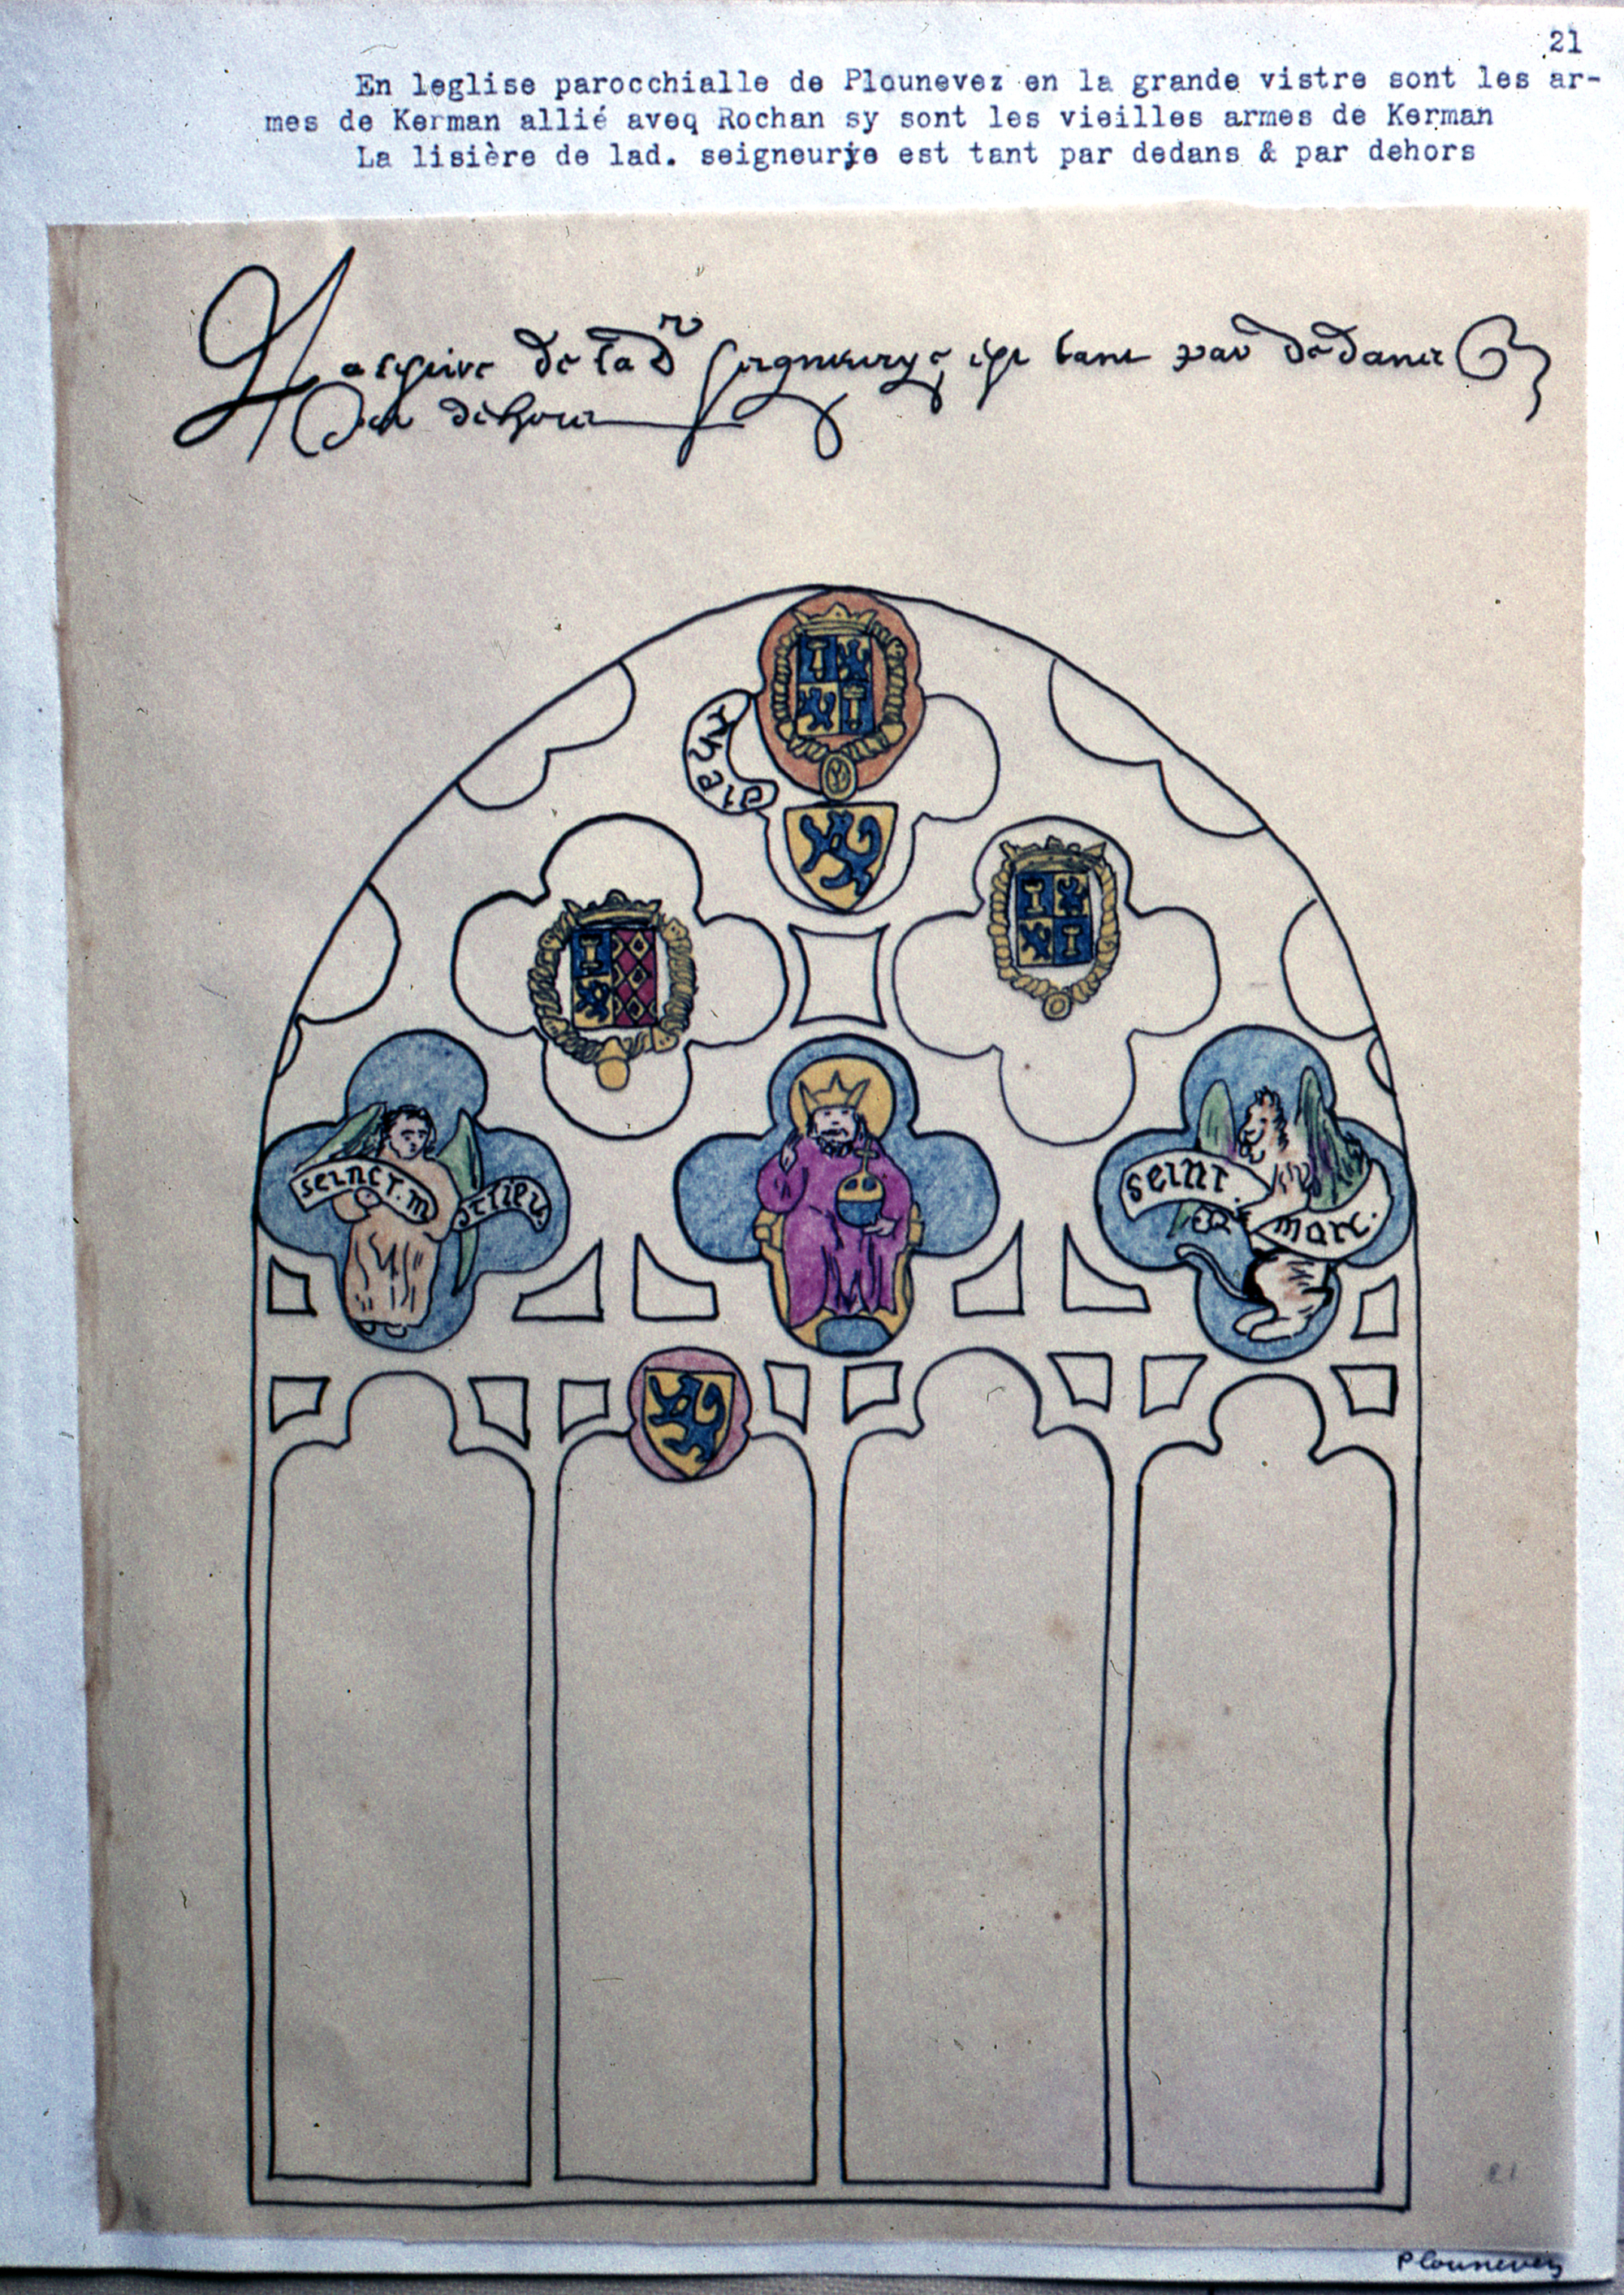 21
En leglise parocchialle de Plounevez en la grande vistre sont les ar-
mes de Kerman allié aveq Rochan sy sont les vieilles armes de Kerman
La lisière de lad. seigneurye est tant par dedans & par dehors
de lad seigneurye est tant par dedans
par dehors
seinct. m
seint.
marc.
Plounevez